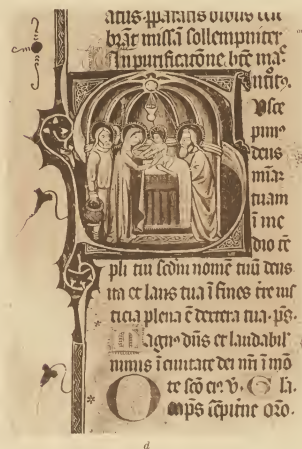 atus. pparatis
brāt missā sollempniter
In purificatōne bte ma⁹
Introitꝰ.
Usce
pimꝰ
deus
mīaꝫ
tuam
ī me
dio tē
pli tui scdm nomē tuū deus
ita et laus tua ī fines tre ius
ticia plena ē dextera tua. ps.
Magnꝰ dn̄s et laudabil'
nimis ī ciuitate dei nr̄i ī mō
te scō eiꝰ. V. Gla.
Omps sēpitne
d